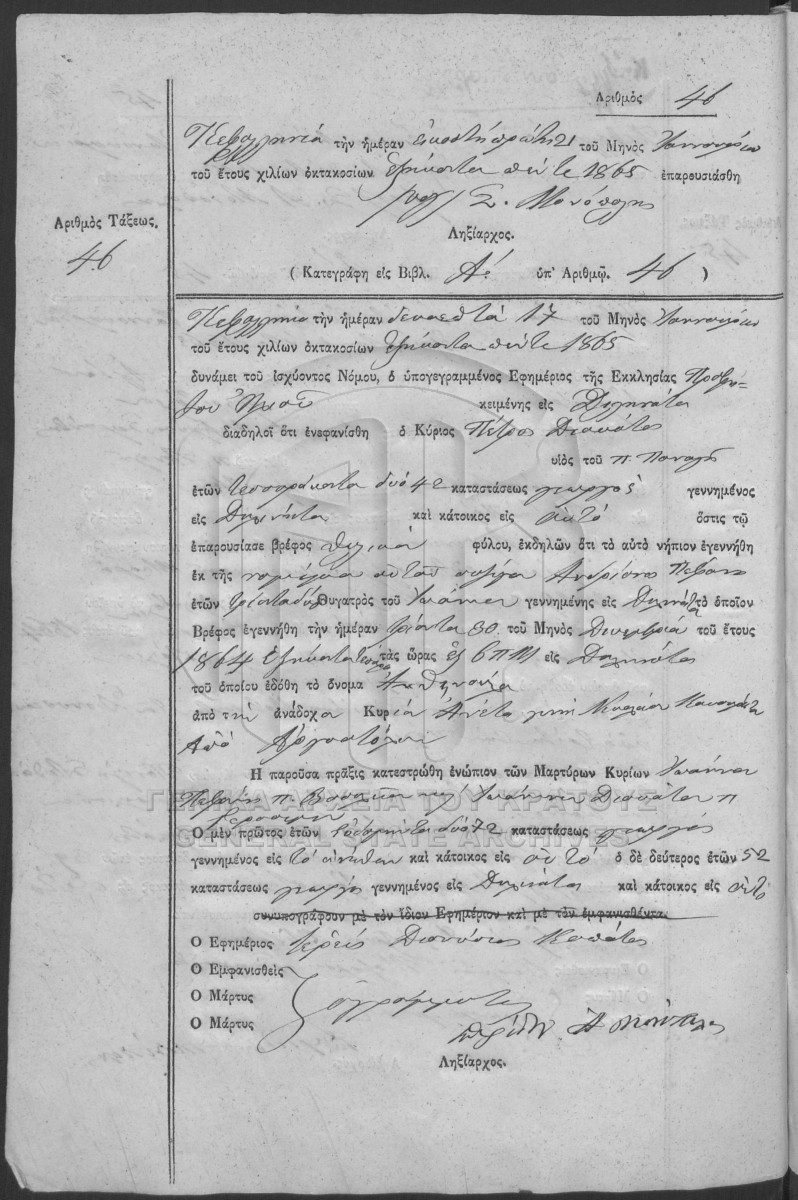 Αριθμὸς 46
Κεφαλληνία τὴν ἡμέραν εἰκοστὴ πρώτη 21 τοῦ Μηνὸς Ἰαννουαρίου
τοῦ ἔτους χιλίων ὀκτακοσίων ἑξήκοντα πέντε 1865 ἐπαρουσιάσθη
Ληξίαρχος.
Ἀριθμὸς Τάξεως.
46
( Κατεγράφη εἰς Βιβλ. Α: ὑπ' Ἀριθμῷ. 46 )
Κεφαλληνία τὴν ἡμέραν δεκαεπτὰ 17 τοῦ Μηνὸς Ἰαννουαρίου
τοῦ ἔτους χιλίων ὀκτακοσίων ἑξήκοντα πέντε 1865
δυνάμει τοῦ ἰσχύοντος Νόμου, ὁ ὑπογεγραμμένος Ἐφημέριος τῆς Ἐκκλησίας Προφή-
του Ἠλιοῦ κειμένης εἰς Διλινάτα
διαδηλοῖ ὅτι ἐνεφανίσθη ὁ Κύριος Πέτρος
υἱὸς τοῦ π. Παναγῆ
ἐτῶν τεσσαράκοντα δύο 42 καταστάσεως γεωργὸς γεννημένος
εἰς Διλινάτα καὶ κάτοικος εἰς αὐτό ὅστις τῷ
ἐπαρουσίασε βρέφος θηλικοῦ φύλου, ἐκδηλῶν ὅτι τὸ αὐτὸ νήπιον ἐγεννήθη
ἐκ τῆς νομίμου αὐτοῦ συζύγου
ἐτῶν τριάντα δύο θυγατρὸς τοῦ Ἰωάννου γεννημένης εἰς Διλινάτα τὸ ὁποῖον
Βρέφος ἐγεννήθη τὴν ἡμέραν τριάντα 30 τοῦ Μηνὸς Δικεμβρίου τοῦ ἔτους
1864 ἑξήκοντα τέσσερα τὰς ὥρας ἓξ 6 πμ εἰς Διλινάτα
τοῦ ὁποίου ἐδόθη τὸ ὄνομα Ἀνθηνοῦλα
ἀπὸ τὴν ἀνάδοχο Κυρία Ἀνέτα
Ἀπὸ Ἀργοστόλιον
Ἡ παροῦσα πρᾶξις κατεστρώθη ἐνώπιον τῶν Μαρτύρων Κυρίων Ἰωάννου
ΓΕΝΙΚΑ ΑΡΧΕΙΑ ΤΟΥ ΚΡΑΤΟΥΣ
GENERAL STATE ARCHIVES
Ὁ μὲν πρῶτος ἐτῶν ἑβδομήντα δύο 72 καταστάσεως γεωργὸς
γεννημένος εἰς καὶ κάτοικος εἰς αὐτό ὁ δὲ δεύτερος ἐτῶν 52
καταστάσεως γεωργὸς γεννημένος εἰς Διλινάτα καὶ κάτοικος εἰς αὐτό
συνυπογράφουν μὲ τὸν ἴδιον Ἐφημέριον καὶ μὲ τὸν ἐμφανισθέντα.
Ὁ Ἐφημέριος Ἱερεὺς Διονύσιος
Ὁ Ἐμφανισθεὶς
Ὁ Μάρτυς ἀγράμματοι
Ὁ Μάρτυς
Ληξίαρχος.